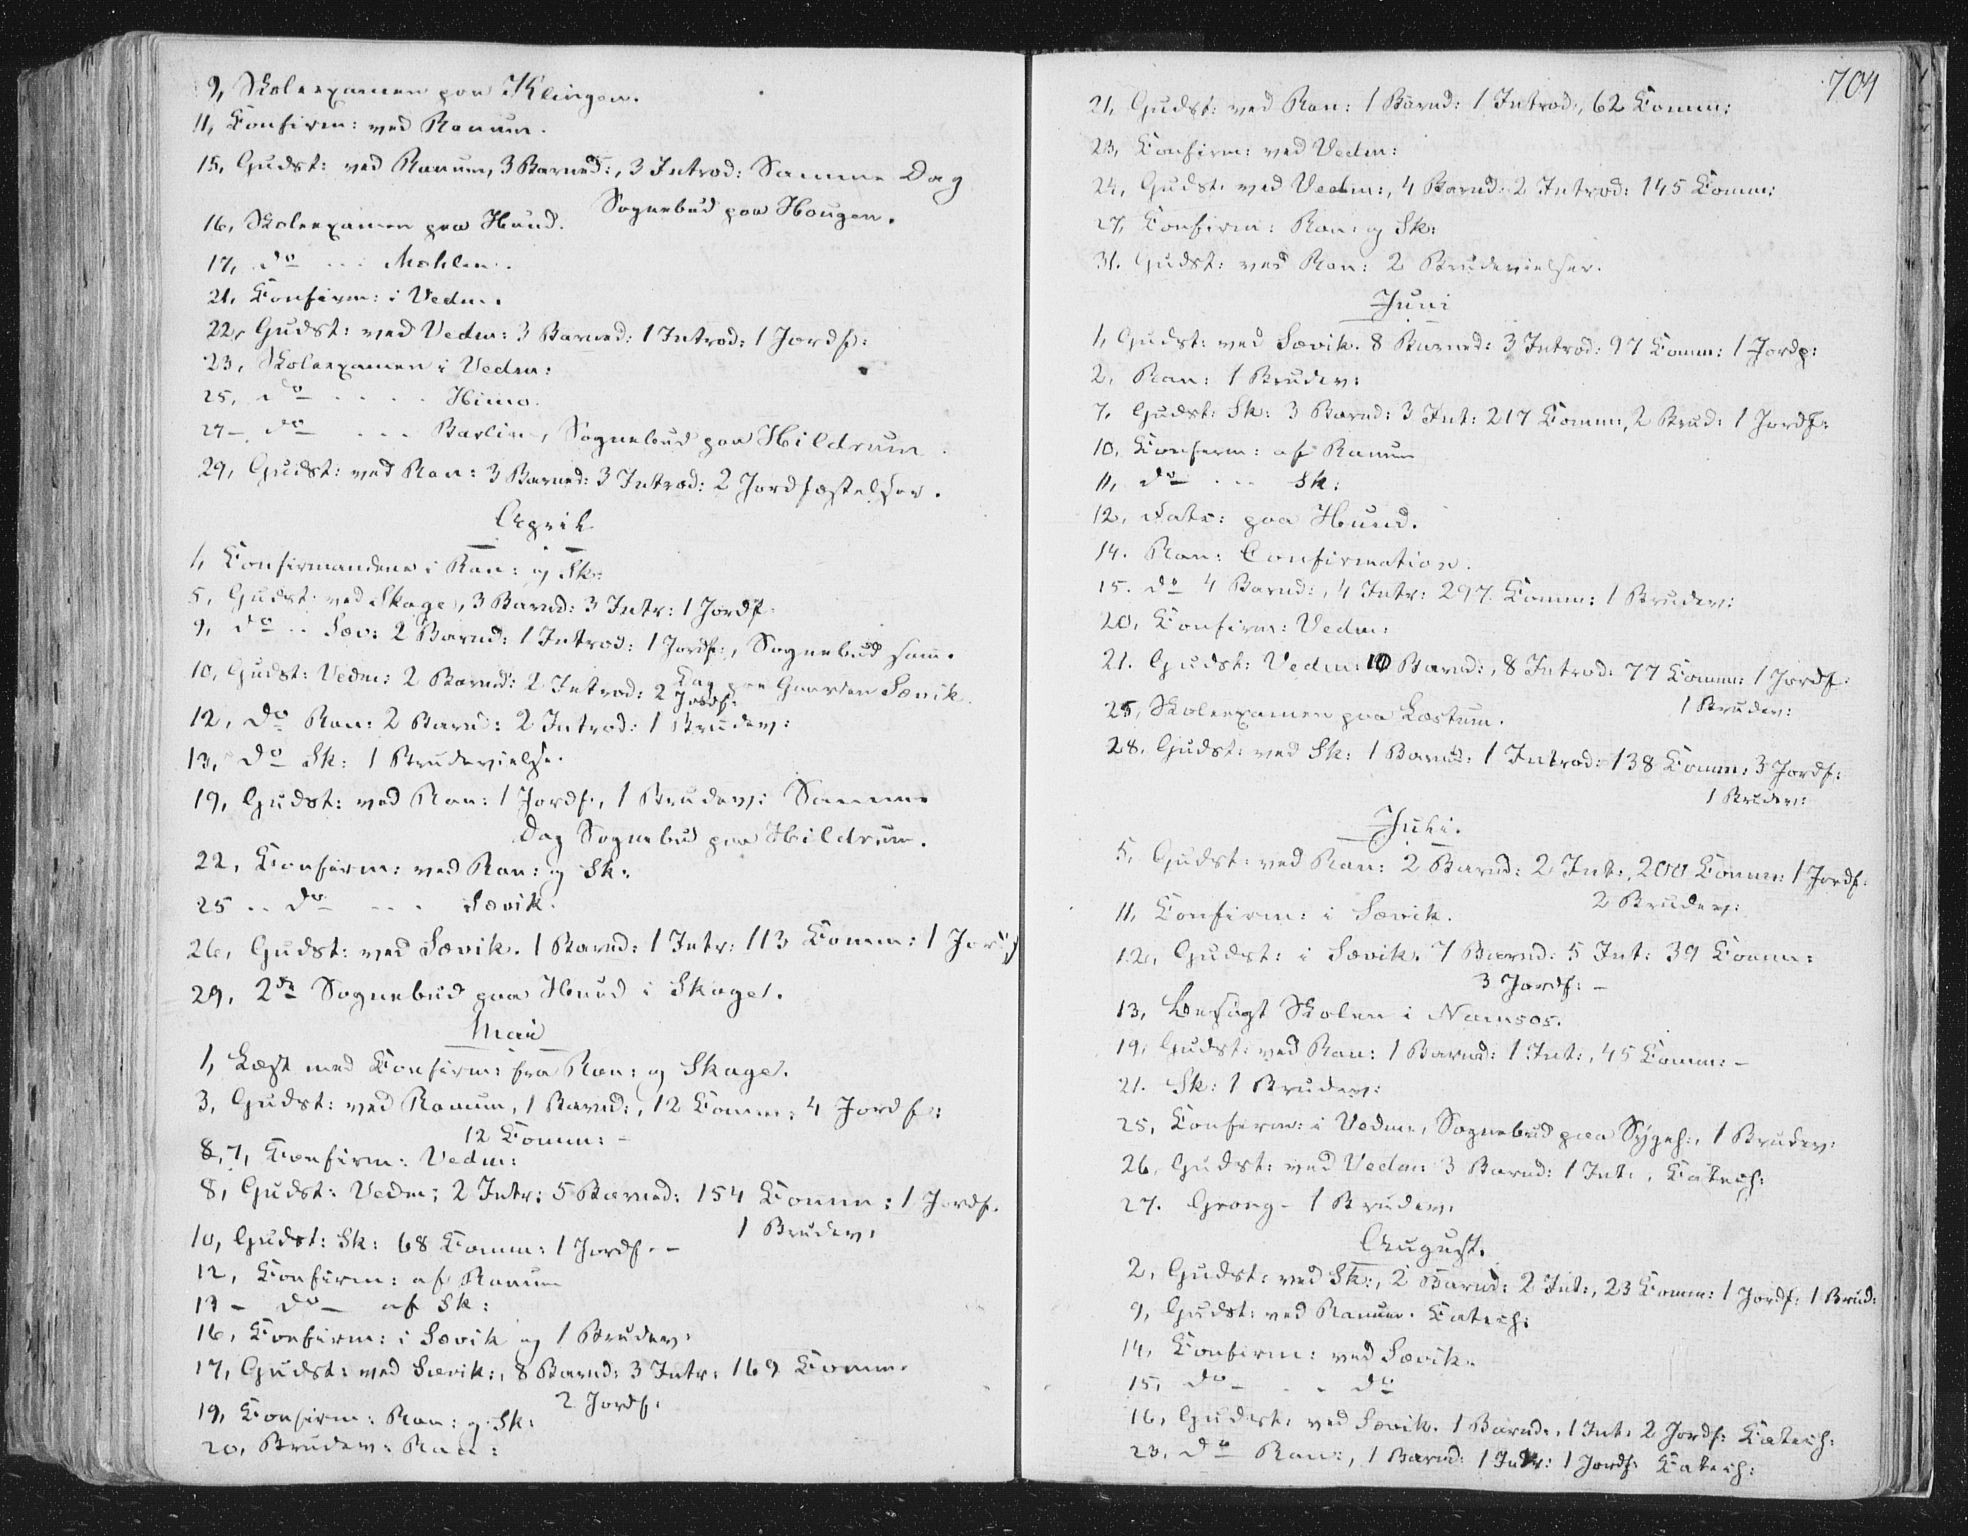 9, Skoleexamen paa Klingen.
11, Confirm: ved Ranum.
15, Gudst: ved Ranum, 3 Barned:, 3 Introd: Samme Dag
Sognebud paa Hougen.
16, Skoleexamen paa Hund.
17, do ... Mehlen.
21, Confirm: i Vedm.
22, Gudst: ved Vedm: 3 Barned: 1 Introd: 1 Jordf:
23, Skoleexamen i Vedm:
25, do .... Himo.
27 - do ... Barlin, Sognebud paa Hildrum.
29, Gudst: ved Ran: 3 Barned: 3 Introd: 2 Jordfæstelser.
April
1, Confirmandene i Ran: og Sk:
5, Gudst: ved Skage, 3 Barnd: 3 Intr: 1 Jordf:
9, do .. Sæv: 2 Barnd: 1 Introd: 1 Jordf:, Sognebud sam.
Dag paa Gaarden Sævik.
10, Gudst: Vedm: 2 Barnd: 2 Introd: 2 Jordf:
12, do Ran: 2 Barnd: 2 Introd: 1 Brudev:
13, do Sk: 1 Brudevielse.
19, Gudst: ved Ran: 1 Jordf:, 1 Brudev: Samme
Dag Sognebud paa Hildrum.
22, Confirm: ved Ran: og Sk:
25 .. do ... Sævik.
26, Gudst: ved Sævik. 1 Barnd: 1 Intr: 113 Comm: 1 Jordf
29, 2de Sognebud paa Hund i Skage.
Mai
1, Læst med Confirm: fra Ran: og Skage.
3, Gudst: ved Ranum, 1 Barnd:, 12 Comm: 4 Jordf:
12 Comm: -
8, 7, Confirm: Vedm:
8, Gudst: Vedm: 2 Intr: 5 Barned: 154 Comm: 1 Jordf.
1 Brudev:
10, Gudst: Sk: 68 Comm: 1 Jordf. -
12, Confirm: af Ranum
13 - do - af Sk:
16, Confirm: i Sævik og 1 Brudev:
17, Gudst: ved Sævik:, 8 Barnd: 3 Intr: 169 Comm.
2 Jordf:
19, Confirm: Ran: og Sk:
20, Brudev: Ran:
704
21, Gudst: ved Ran: 1 Barnd: 1 Introd:, 62 Comm:
23, Confirm: ved Vedm:
24, Gudst: ved Vedm:, 4 Barnd: 2 Introd: 145 Comm:
27, Confirm: Ran: og Sk:
31. Gudst: ved Ran: 2 Brudevielser.
Juni
1, Gudst: ved Sævik. 8 Barned: 3 Introd: 97 Comm: 1 Jordp:
2, Ran: 1 Brudev:
7, Gudst: Sk: 3 Barnd: 3 Int: 217 Comm:, 2 Brud: 1 Jordf:
10, Confirm: af Ranum
11, do ... Sk:
12, Cate: paa Hund.
14. Ran: Confirmation.
15. do 4 Barnd:, 4 Intr: 297 Comm: 1 Brudev:
20, Confirm: Vedm:
21. Gudst: Vedm: 10 Barnd:, 8 Introd: 77 Comm: 1 Jordf:
1 Brudev:
25, Skoleexamen paa Læstum.
28. Gudst: ved Sk: 1 Barnd: 1 Introd: 138 Comm: 3 Jordf:
1 Brudev:
Juli.
5, Gudst: ved Ran: 2 Barnd: 2 Int:, 200 Comm: 1 Jordf:
2 Brudev:
11, Confirm: i Sævik.
12, Gudst: i Sævik. 7 Barnd: 5 Int: 39 Comm:
3 Jordf: -
13, Besøgt Skolen i Namsos.
19, Gudst: ved Ran: 1 Barnd: 1 Int:, 45 Comm: -
21. Sk: 1 Brudev:
25, Confirm: i Vedm:, Sognebud paa Sygeh:, 1 Brudev:
26, Gudst: ved Vedm: 3 Barnd: 1 Int:, Catech:
27. Grong - 1 Brudev:
August.
2, Gudst: ved Sk:, 2 Barnd: 2 Int:, 23 Comm: 1 Jordf: 1 Brud:
9, Gudst: ved Ranum. Catech:
14, Confirm: ved Sævik.
15, do - .. do
16, Gudst: ved Sævik. 1 Barnd:, 1 Int: 2 Jordf: Catech:
23. do Ran:, 1 Barnd: 1 Intr: 1 Jordf: Catech: